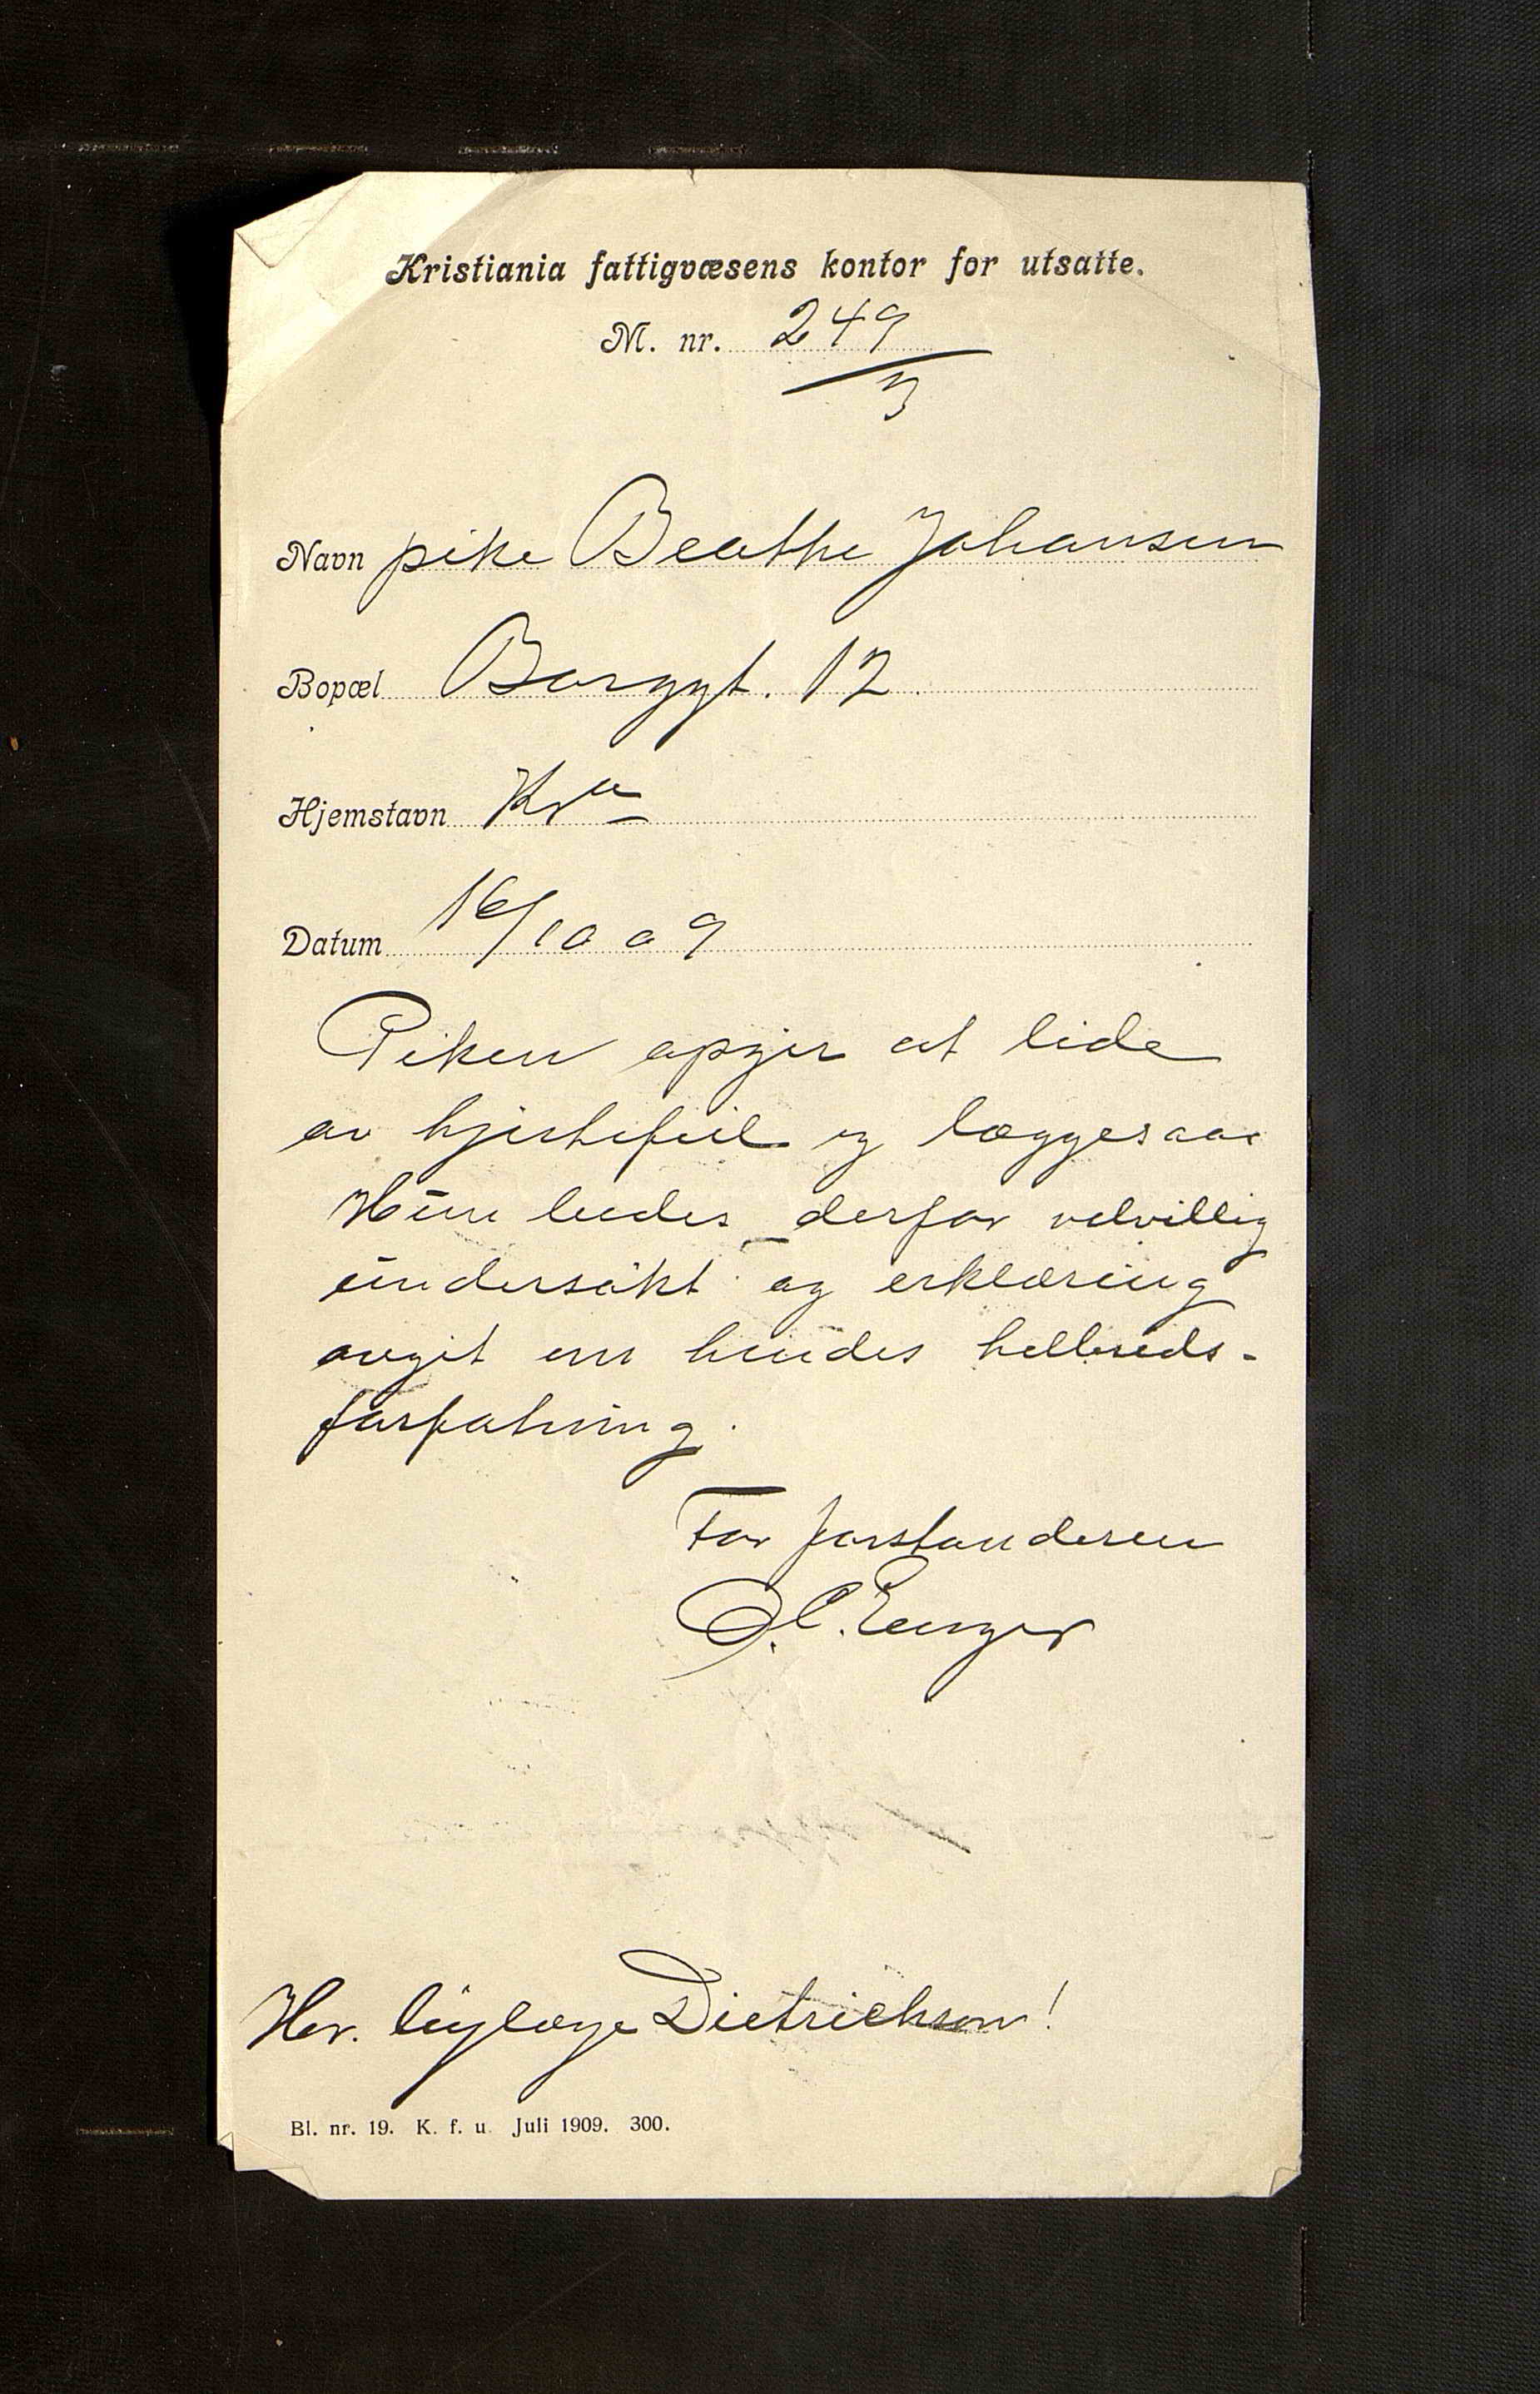 Kristiania fattigvæsens kontor for utsatte.
M. nr. 249
3
Navn pike Beathe Johansen
Bopæl Borggt. 12
Hjemstavn Kra
Datum 16/10 09
Piken opgir at lide
av hjertefeil og læggesaar
Hun bedes derfor velvillig
undersökt og erklæring
avgit om hendes helbreds-
forfatning.
For forstanderen
C. Enger
Hr. Dietrichson!
Bl. nr. 19. K. f. u. Juli 1909. 300.